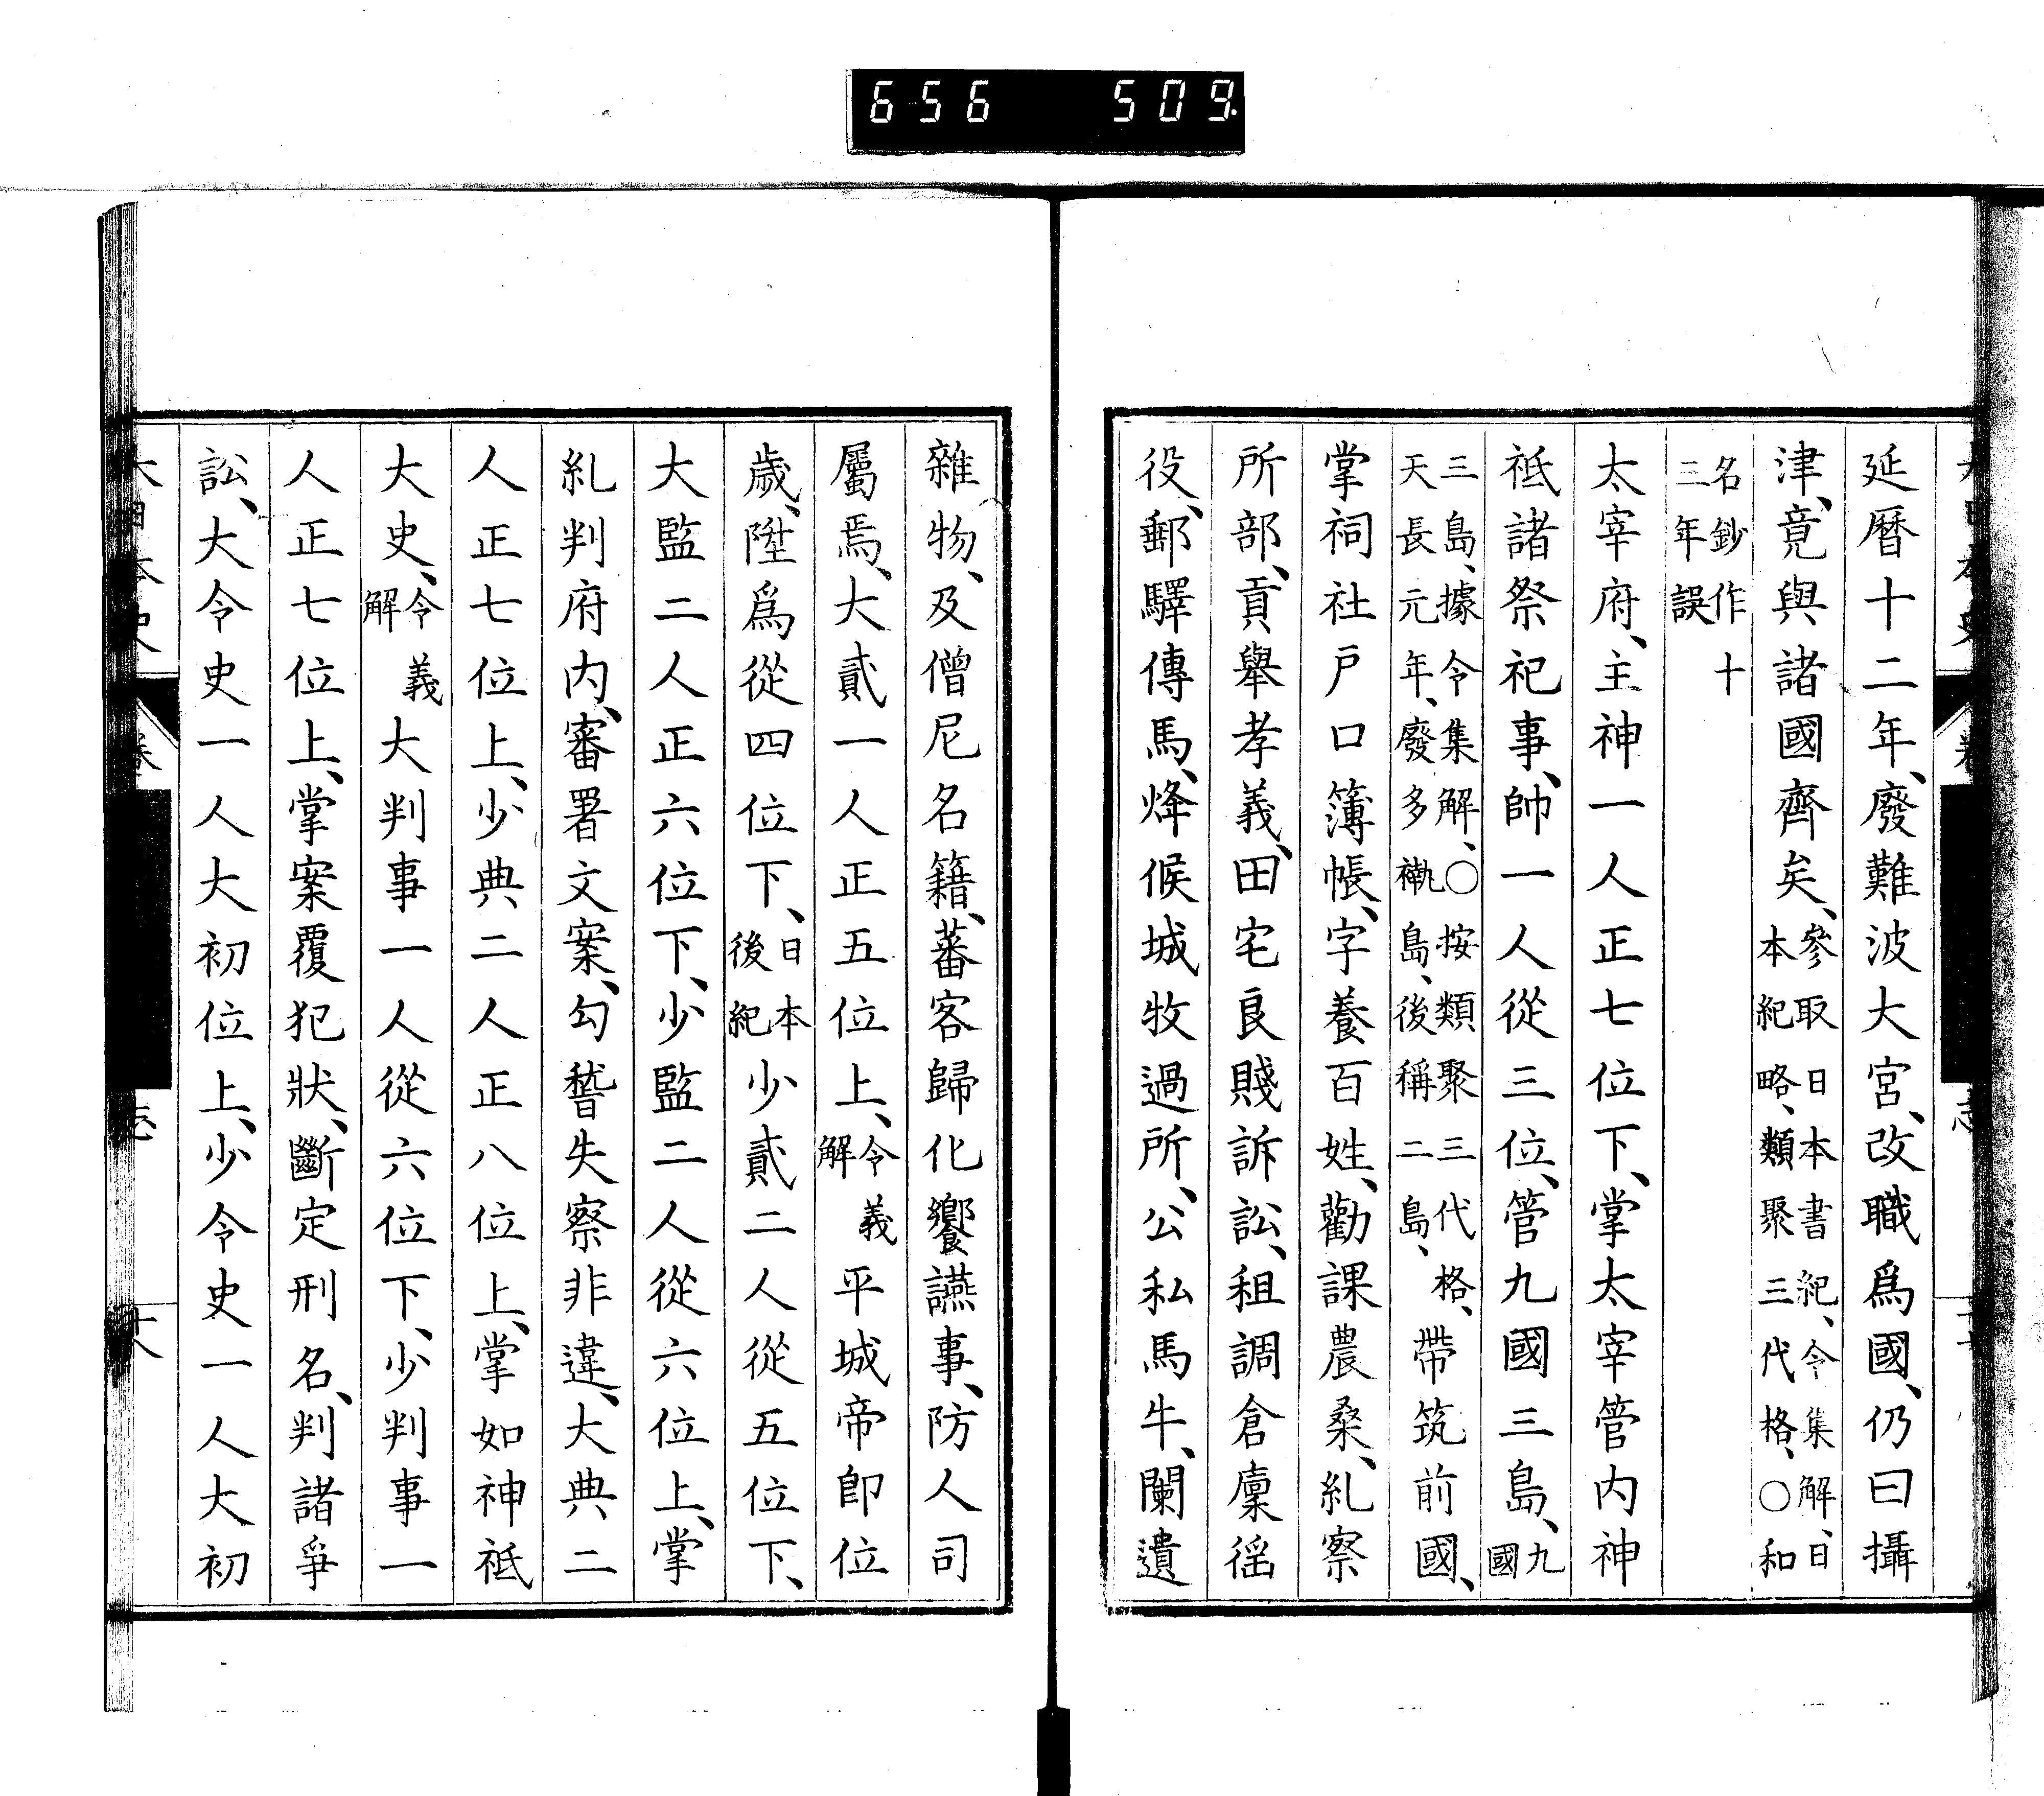 656 509.
延曆十二年、廢難波大宮、改職爲國、仍曰攝
津、竟與諸國齊矣、參取日本書紀、令集解、日本紀略、類聚三代格、〇和
名鈔作十三年誤
太宰府、主神一人正七位下、掌太宰管内神
祇諸祭祀事、帥一人從三位、管九國三島、九國
三島、據令集解、〇按類聚三代格、天長元年、廢多褹島、後稱二島、帶筑前國、
掌祠社戸口簿帳、字養百姓、勸課農桑、糺察
所部、貢舉孝義、田宅良賤訴訟、租調倉廩徭
役、郵驛傳馬、烽候城牧過所、公私馬牛、闌遺
雜物、及僧尼名籍、蕃客歸化饗讌事、防人司
屬焉、大貳一人正五位上、令義解平城帝卽位
歲、陞爲從四位下、日本後紀少貳二人從五位下、
大監二人正六位下、少監二人從六位上、掌
糺判府内、審署文案、勾稽失察非違、大典二
人正七位上、少典二人正八位上、掌如神祇
大史、令義解大判事一人從六位下、少判事一
人正七位上、掌案覆犯狀、斷定刑名、判諸爭
訟、大令史一人大初位上、少令史一人大初